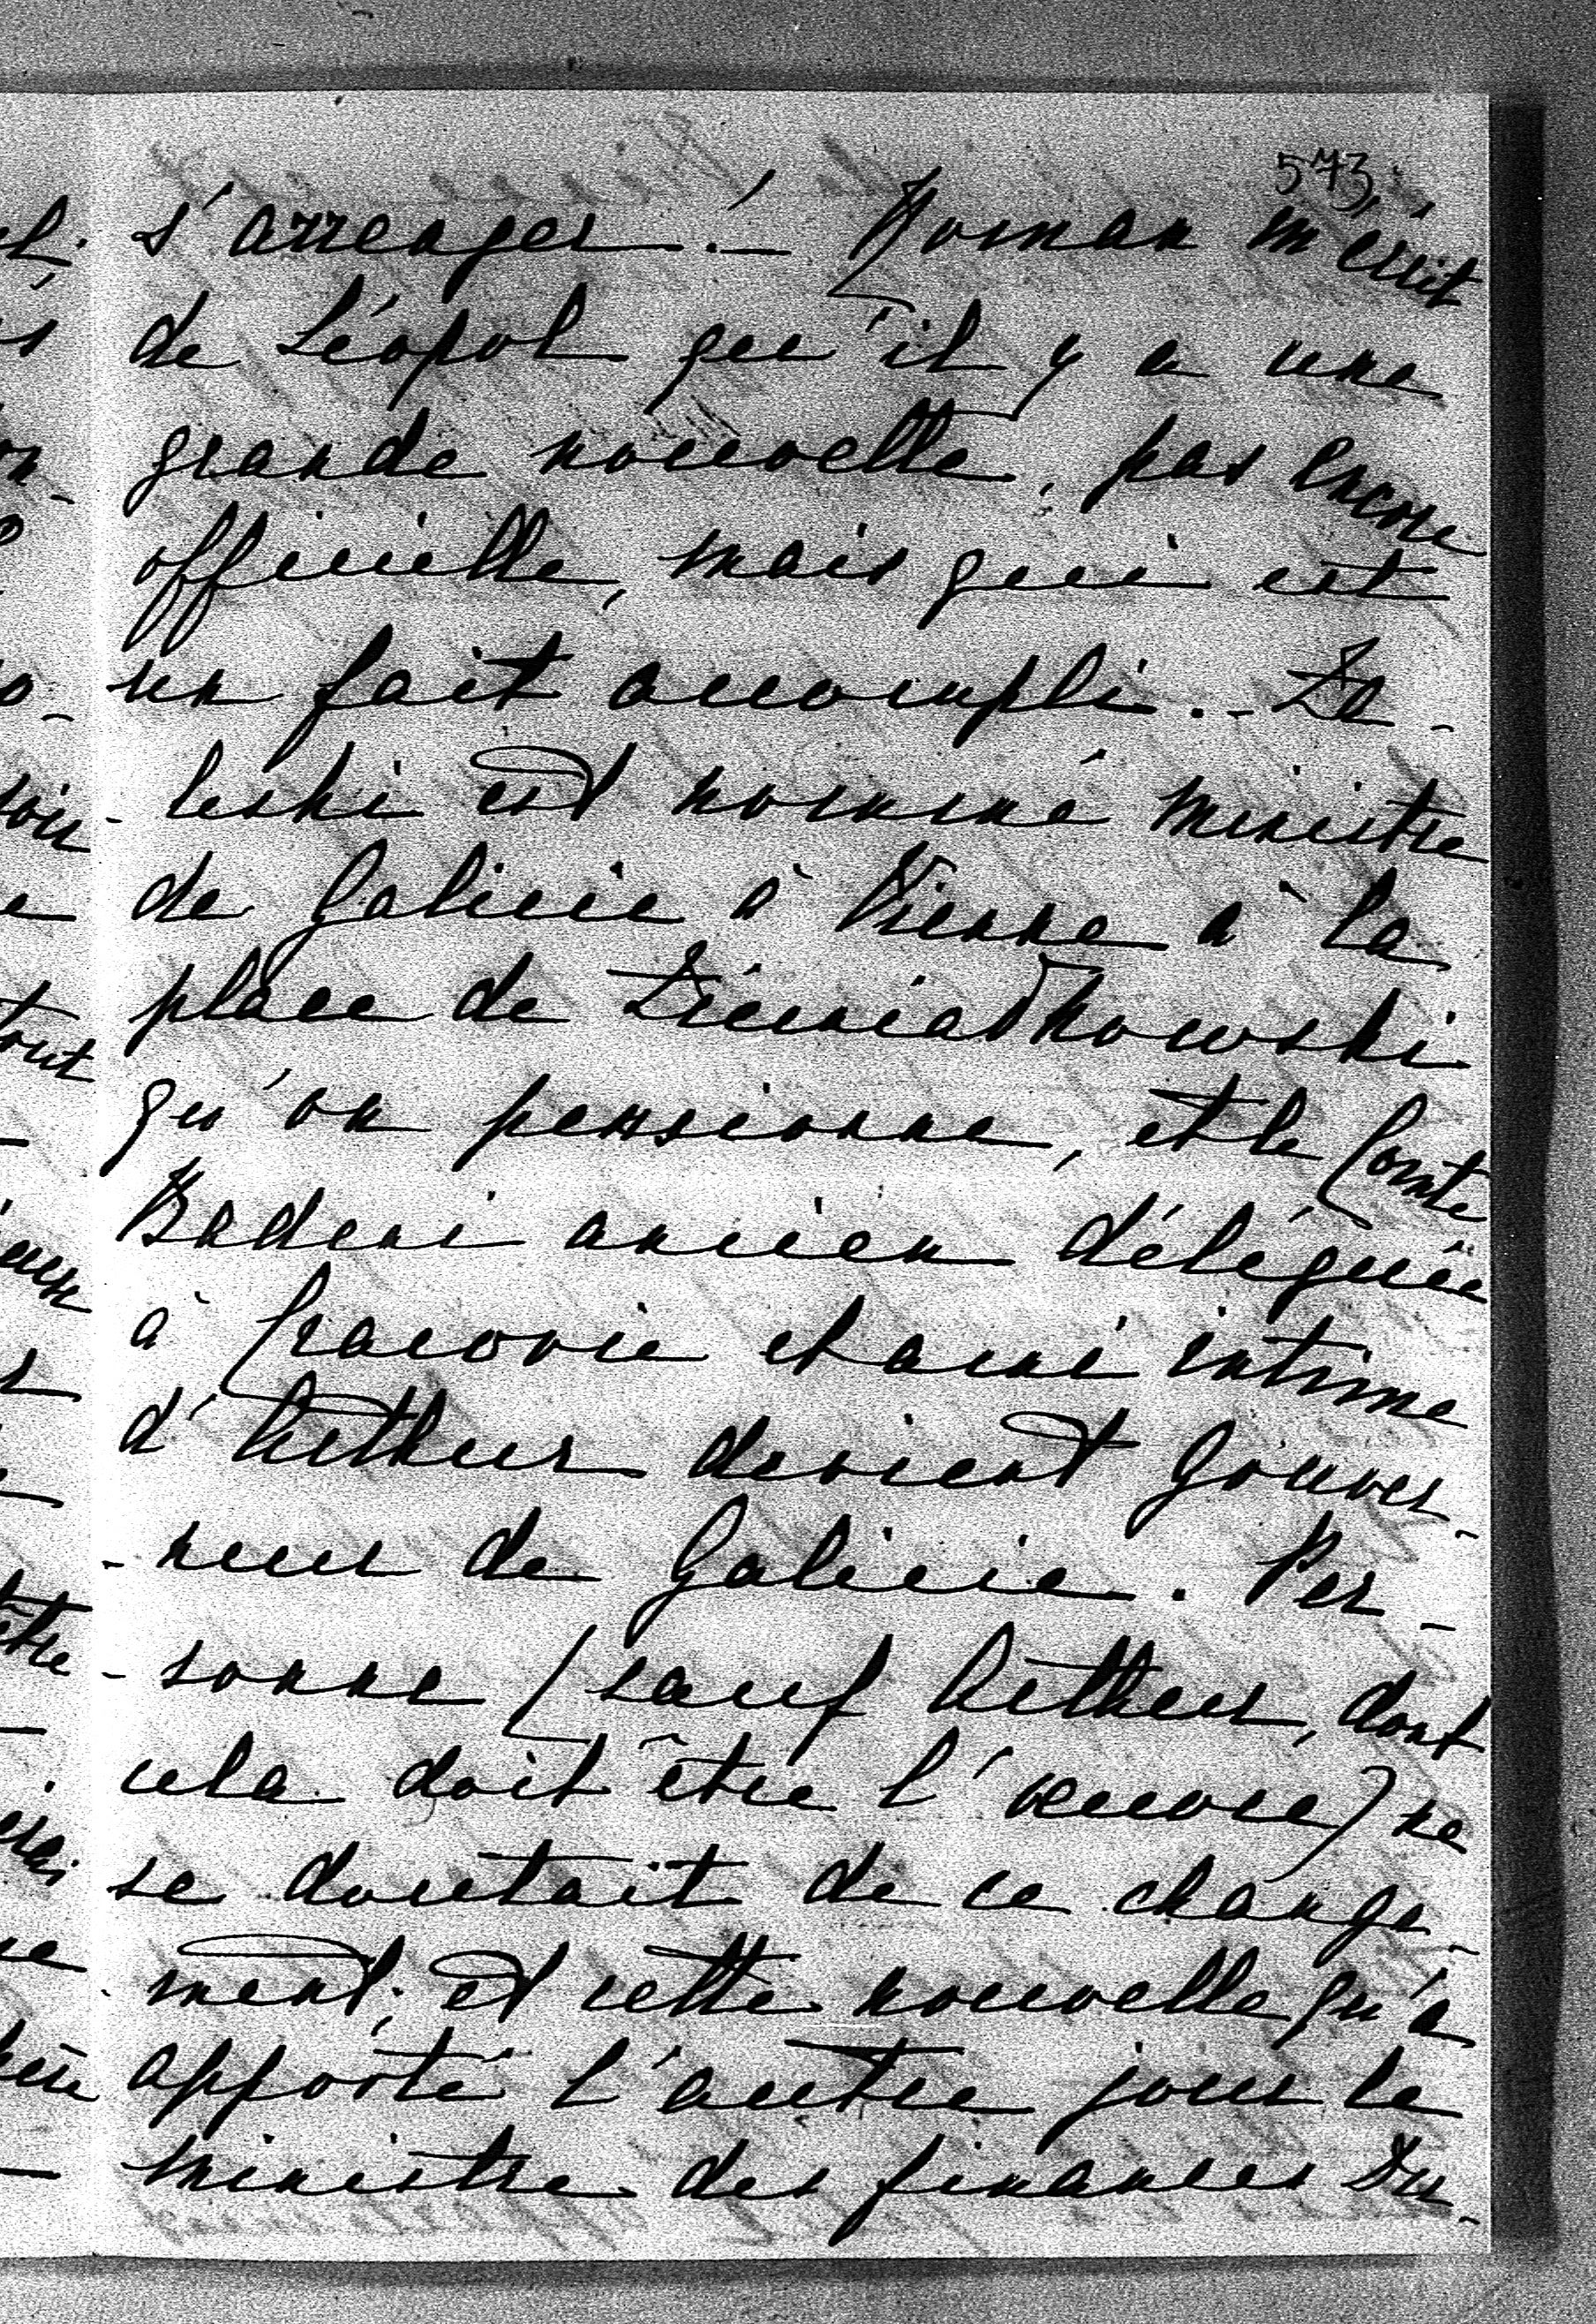 573
s'arrenger. — Roman m'écrit
de Léopol qu'il y a une
grande nouvelle, pas encore
officielle, mais qui est
un fait accompli. — Za-
leski est nommé ministre
de Galicie à Vienne à la
place de Ziemiałkowski
qu'on pensionne, et le Comte
Badeni ancien déléguée
à Cracovie et ami intime
d'Arthur devient Gouver-
-neur de Galicie. Per-
-sonne (sauf Arthur, dont
cela doit être l'œuvre) ne
se doutait de ce change-
-ment, et cette nouvelle qu'a
apporté l'autre jour le
ministre des finances Du-